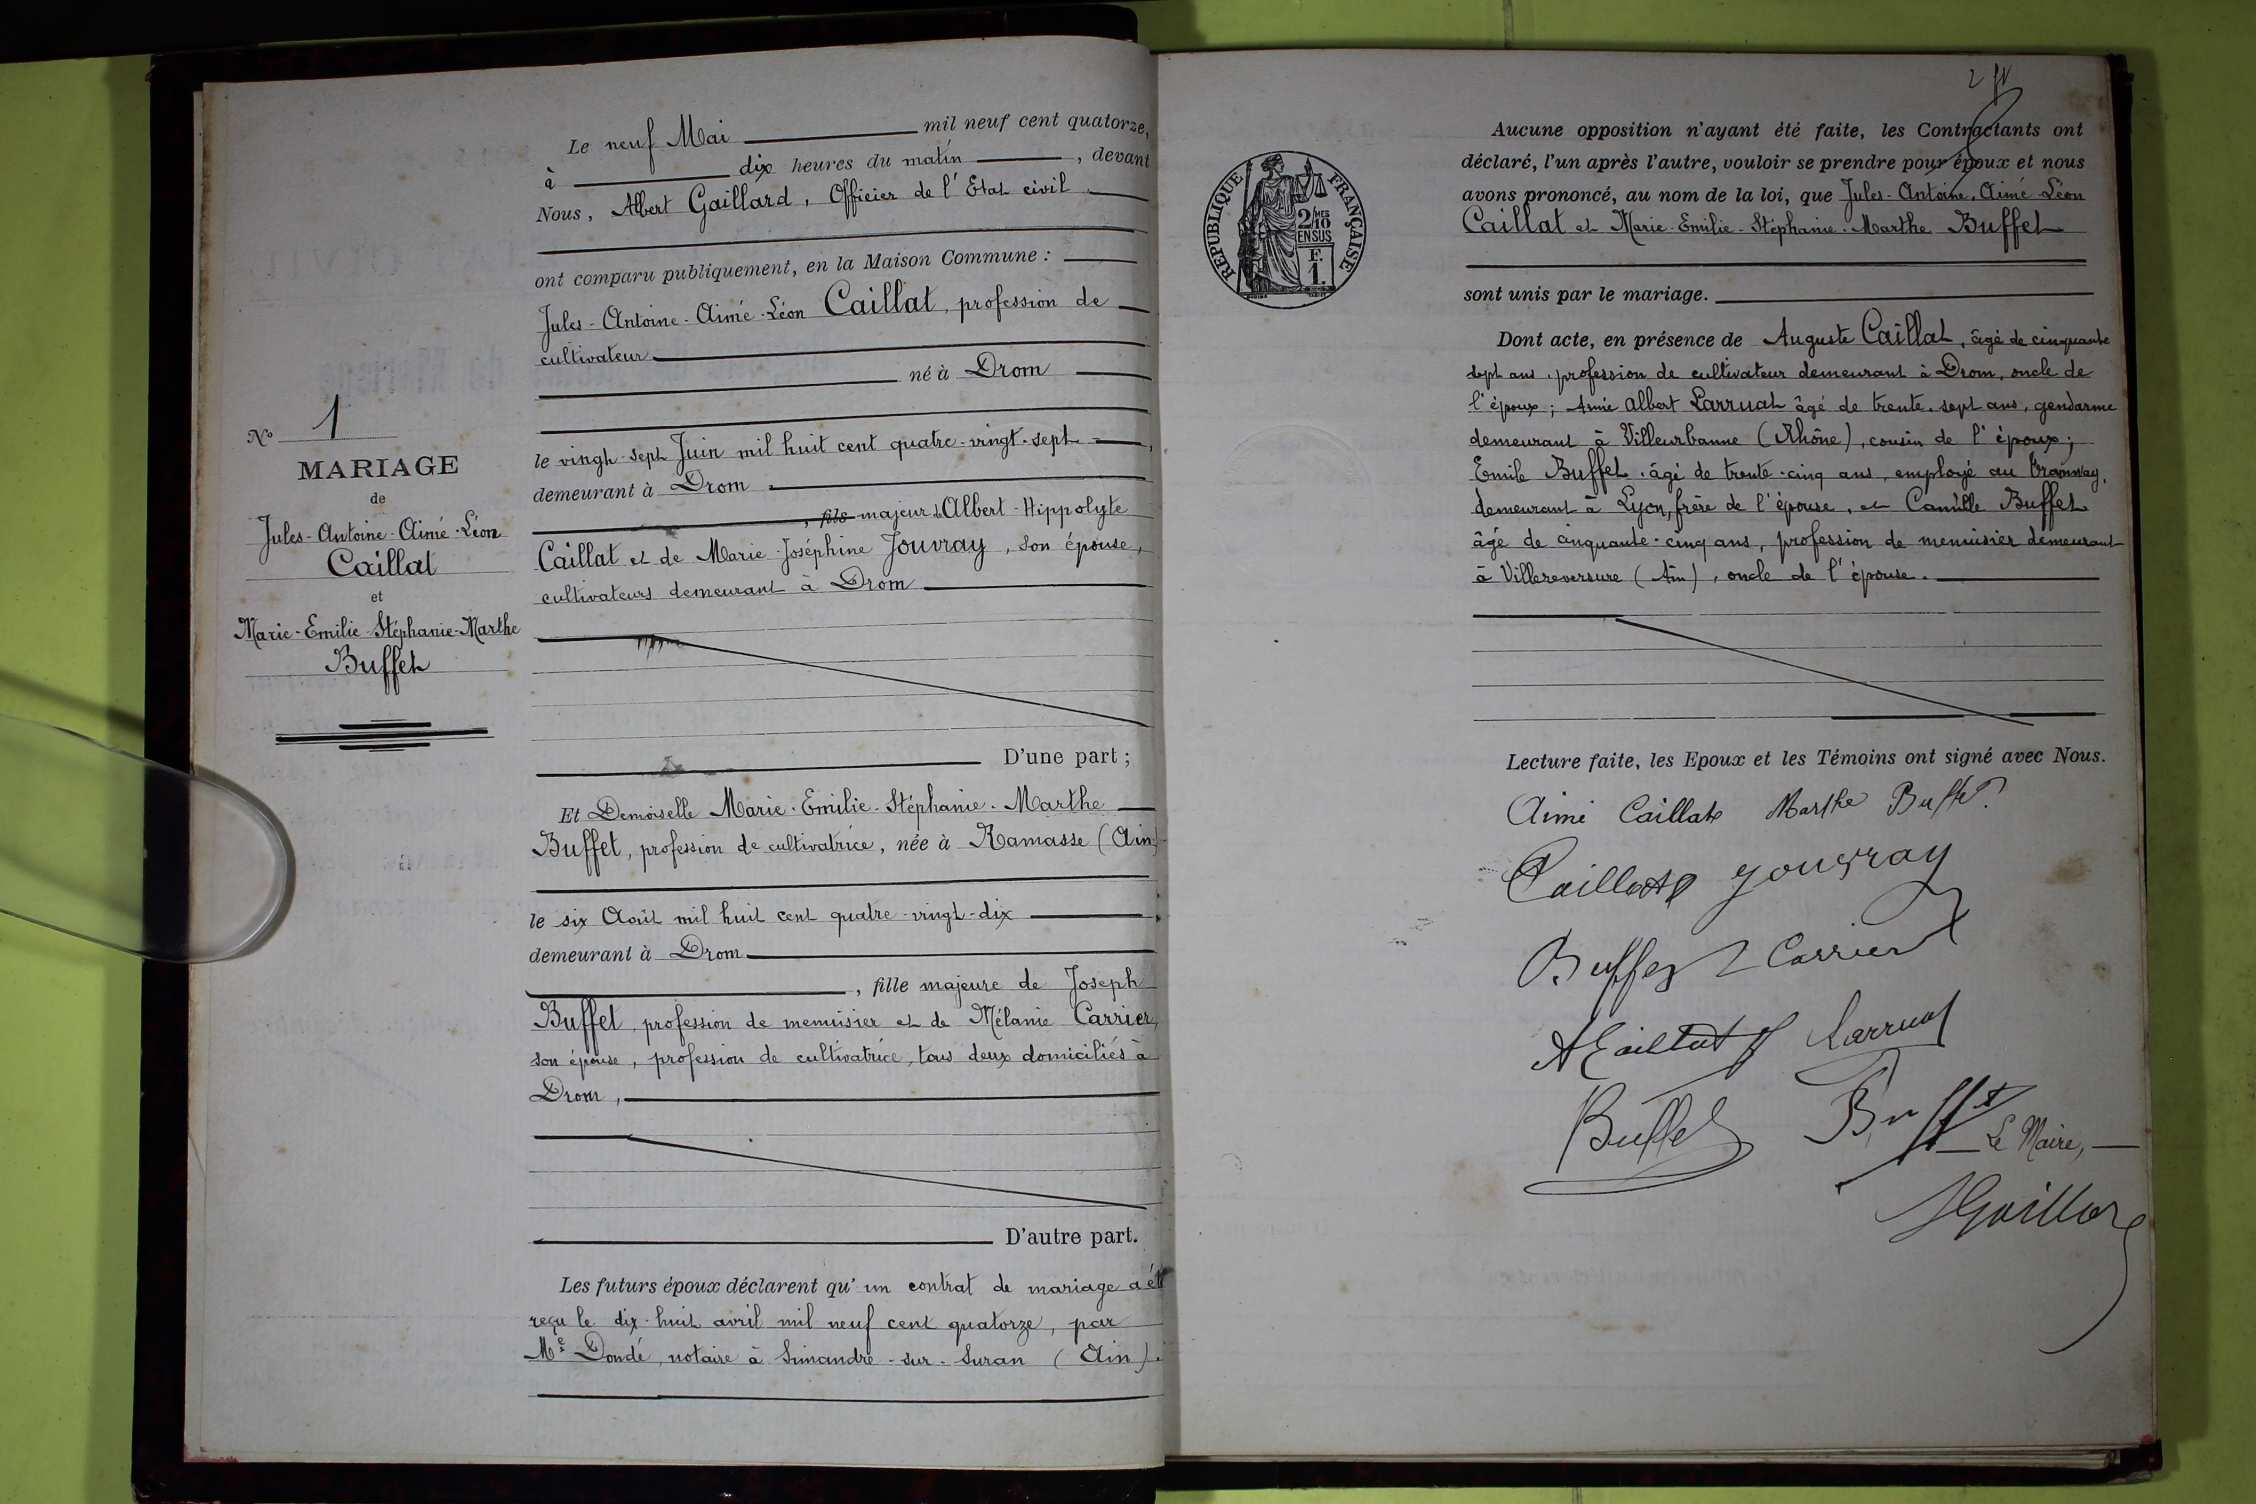 Nº 1
MARIAGE
de
Jules-Antoine-Aimé-Léon
Caillat
et
Marie-Emilie-Stéphanie-Marthe
Buffet
Le neuf Mai mil neuf cent quatorze,
à dix heures du matin, devant
Nous, Albert Gaillard, Officier de l'Etat civil
ont comparu publiquement, en la Maison Commune :
Jules-Antoine-Aimé-Léon Caillat, profession de
cultivateur
né à Drom
le vingt-sept Juin mil huit cent quatre-vingt-sept,
demeurant à Drom
, fils majeur de Albert-Hippolyte
Caillat et de Marie-Joséphine Jouvray, son épouse,
cultivateurs demeurant à Drom
D'une part ;
Et Demoiselle Marie-Emilie-Stéphanie-Marthe
Buffet, profession de cultivatrice, née à Ramasse (Ain)
le six Août mil huit cent quatre-vingt-dix
demeurant à Drom
, fille majeure de Joseph
Buffet, profession de menuisier et de Mélanie Carrier,
son épouse, profession de cultivatrice, tous deux domiciliés à
Drom,
D'autre part.
Les futurs époux déclarent qu'un contrat de mariage a été
reçu le dix-huit avril mil neuf cent quatorze, par
Me Dondé, notaire à Simandre-sur-Suran (Ain).
RÉPUBLIQUE FRANÇAISE
2/10
EN SUS
F.
1.
Aucune opposition n'ayant été faite, les Contractants ont
déclaré, l'un après l'autre, vouloir se prendre pour époux et nous
avons prononcé, au nom de la loi, que Jules-Antoine-Aimé-Léon
Caillat et Marie-Emilie-Stéphanie-Marthe Buffet
sont unis par le mariage.
Dont acte, en présence de Auguste Caillat, âgé de cinquante
sept ans, profession de cultivateur demeurant à Drom, oncle de
l'époux ; Aimé Albert Larruat âgé de trente-sept ans, gendarme
demeurant à Villeurbanne (Rhône), cousin de l'époux ;
Emile Buffet, âgé de trente-cinq ans, employé au Tramway,
demeurant à Lyon, frère de l'épouse, et Camille Buffet
âgé de cinquante-cinq ans, profession de menuisier demeurant
à Villereversure (Ain), oncle de l'épouse.
Lecture faite, les Epoux et les Témoins ont signé avec Nous.
Aimé Caillat Marthe Buffet
Caillat Jouvray
Buffet Carrier
A Caillat Larruat
Buffet Buffet
Le Maire,
AGaillard